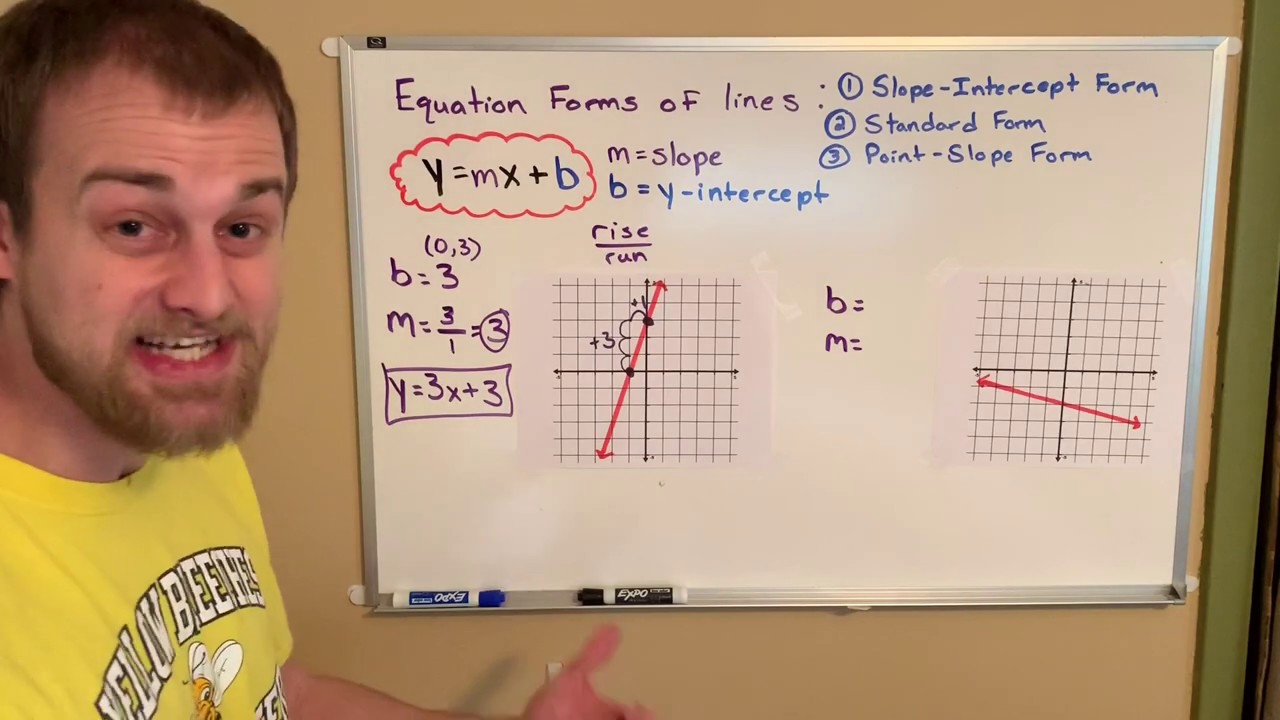 Equation Forms of lines :
① Slope-Intercept Form
② Standard Form
③ Point-Slope Form
y=mx+b
m=slope
b=y-intercept
rise
run
(0,3)
b=3
m=3/1=3
y=3x+3
+1
+3
b=
m=
EXPO
EXPO
YELLOW BEEHIVES